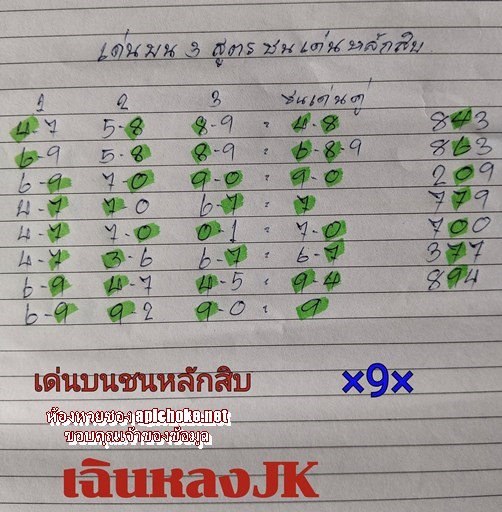 เด่นบน 3 สูตร ชนเด่นหลักสิบ
1 2 3 ชนเด่นคู่
4-7 5-8 8-9 = 4-8 843
6-9 5-8 8-9 = 6-8-9 863
6-9 7-0 9-0 = 9-0 209
4-7 7-0 6-7 = 7 779
4-7 7-0 0-1 = 7-0 700
4-7 3-6 6-7 = 6-7 377
6-9 4-7 4-5 = 9-4 894
6-9 9-2 9-0 = 9
เด่นบนชนหลักสิบ ×9×
ห้องหวยของ apichoke.net
ขอบคุณเจ้าของข้อมูล
เฉินหลงJK